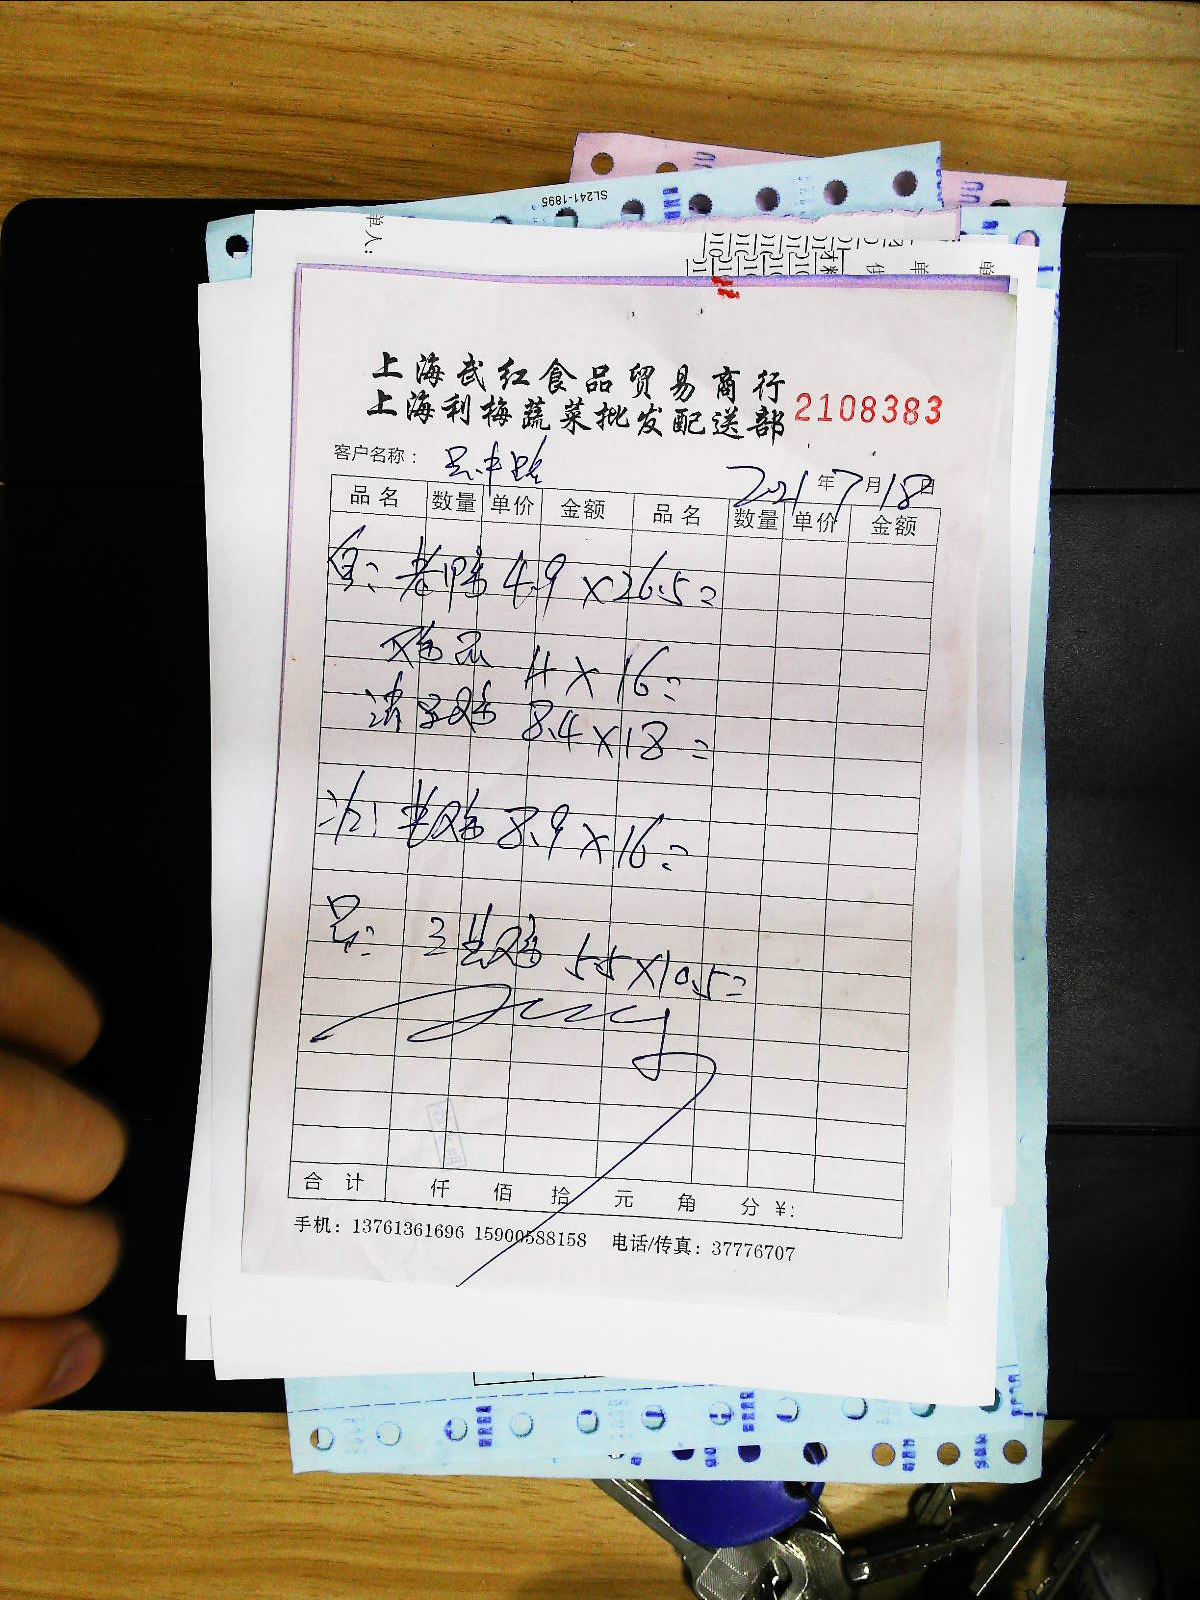 SL241-1895
单人:
上海武红食品贸易商行
上海利梅蔬菜批发配送部 2108383
客户名称: 吴中路
2021年7月18日
品名 数量 单价 金额 品名 数量 单价 金额
老鸭 4.9×26.5=
鸡爪 11×16=
清远鸡 8.4×18=
老鸡 8.9×16=
吴: 三黄鸡 5.5×10.5=
合计 仟 佰 拾 元 角 分 ¥:
手机: 13761361696 15900588158 电话/传真: 37776707